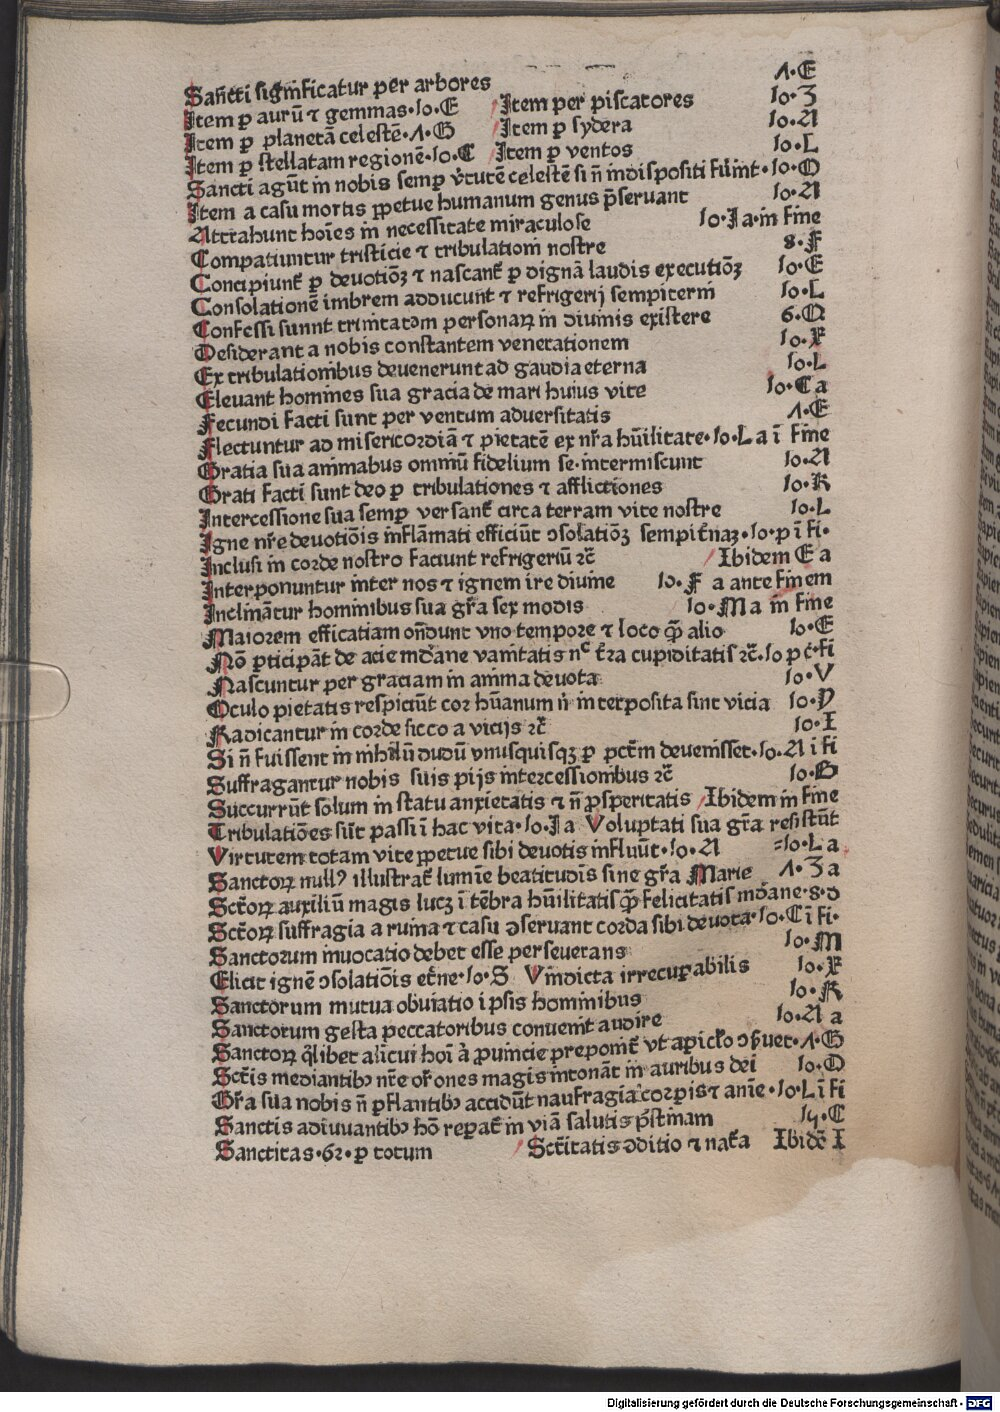 Sancti significatur per arbores 1·E
Item ꝑ aurū ⁊ gemmas·10·E Item per piscatores 10·Z
Item ꝑ planetā celestē·1·G Item ꝑ sydera 10·N
Item ꝑ stellatam regionē·10·C Item ꝑ ventos 10·L
Sancti agūt in nobis semꝑ v̄tutē celestē si n̄ indispositi fūint·10·O
Item a casu mortis ꝑpetue humanum genus p̄seruant 10·N
Attrahunt hoīes in necessitate miraculose 10·I a·in fine
Compatiuntur tristicie ⁊ tribulationi nostre 8·F
Concipiunt̄ ꝑ deuotiōꝫ ⁊ nascant̄ ꝑ dignā laudis executiōꝫ 10·E
Consolationē imbrem adducunt ⁊ refrigerij sempiterni 10·L
Confessi sunnt trinitatem personaꝝ in diuinis existere 6·N
Desiderant a nobis constantem venerationem 10·X
Ex tribulationibus deuenerunt ad gaudia eterna 10·L
Eleuant homines sua gracia de mari huius vite 10·C a
Fecundi facti sunt per ventum aduersitatis 1·E
Flectuntur ad misericordiā ⁊ pietatē ex nr̄a hūilitate·10·L a ī fine
Gratia sua animabus omniū fidelium se·intermiscunt 10·N
Grati facti sunt deo ꝑ tribulationes ⁊ afflictiones 10·K
Intercessione sua semꝑ versant̄ circa terram vite nostre 10·L
Igne nr̄e deuotiōis inflāmati efficiūt ↄsolatiōꝫ sempit̄naꝫ·10·p ī fi·
Inclusi in corde nostro faciunt refrigeriū ⁊c̄ Ibidem E a
Interponuntur inter nos ⁊ ignem ire diuine 10·F a ante finem
Inclināntur hominibus sua gr̄a sex modis 10·M a in fine
Maiorem efficatiam on̄dunt vno tempore ⁊ loco q̄ꝫ alio 10·E
Nō ꝑticipāt de acie mūdane vanitatis nᶜ t̄ra cupiditatis ⁊c̄·10 p ē·fi
Nascuntur per graciam in anima deuota 10·V
Oculo pietatis respiciūt cor hūanum n̄ interposita sint vicia 10·Y
Radicantur in corde sicco a vicijs ⁊c̄ 10·I
Si n̄ fuissent in nihilū dudū vnusquisqꝫ ꝑ pct̄m deuenisset·10·N i fi
Suffragantur nobis suis pijs intercessionibus ⁊c̄ 10·B
Succurrūt solum in statu anxietatis ⁊ n̄ ꝓsperitatis Ibidem in fine
Tribulatiōes sūt passi ī hac vita·10·I a Voluptati sua gr̄a resistūt
Virtutem totam vite ꝑpetue sibi deuotis influūt·10·N =10·L a
Sanctoꝝ nullꝰ illustrat̄ lumīe beatitudīs sine gr̄a Marie 1·Z a
Sct̄oꝝ auxiliū magis lucꝫ ī tēbra hūilitatis q̄ꝫ felicitatis mūdane·8·D
Sct̄oꝝ suffragia a ruina ⁊ casu ↄseruant corda sibi deuota·10·C ī fi·
Sanctorum inuocatio debet esse perseuerans 10·M
Elicit ignē ↄsolatiōis et̄ne·10·S Vindicta irrecuꝑabilis 10·X
Sanctorum mutua obuiatio ipsis hominibus 10·K
Sanctorum gesta peccatoribus conuenit audire 10·N a
Sanctoꝝ q̄libet alicui hoī ā ꝓuincie preponit̄ vt a ꝑiclō ↄẜuet·1·G
Sct̄is mediantibꝫ nr̄e or̄ones magis intonāt in auribus dei 10·O
Gr̄a sua nobis n̄ ꝑflantibꝫ accidūt naufragia corpis ⁊ anīe·10·L ī fi
Sanctis adiuuantibꝫ hō reꝑat̄ in viā salutis p̄stinam 14·C
Sanctitas·62·ꝑ totum Sct̄itatis ↄditio ⁊ nat̄a Ibidē I
Digitalisierung gefördert durch die Deutsche Forschungsgemeinschaft - DFG